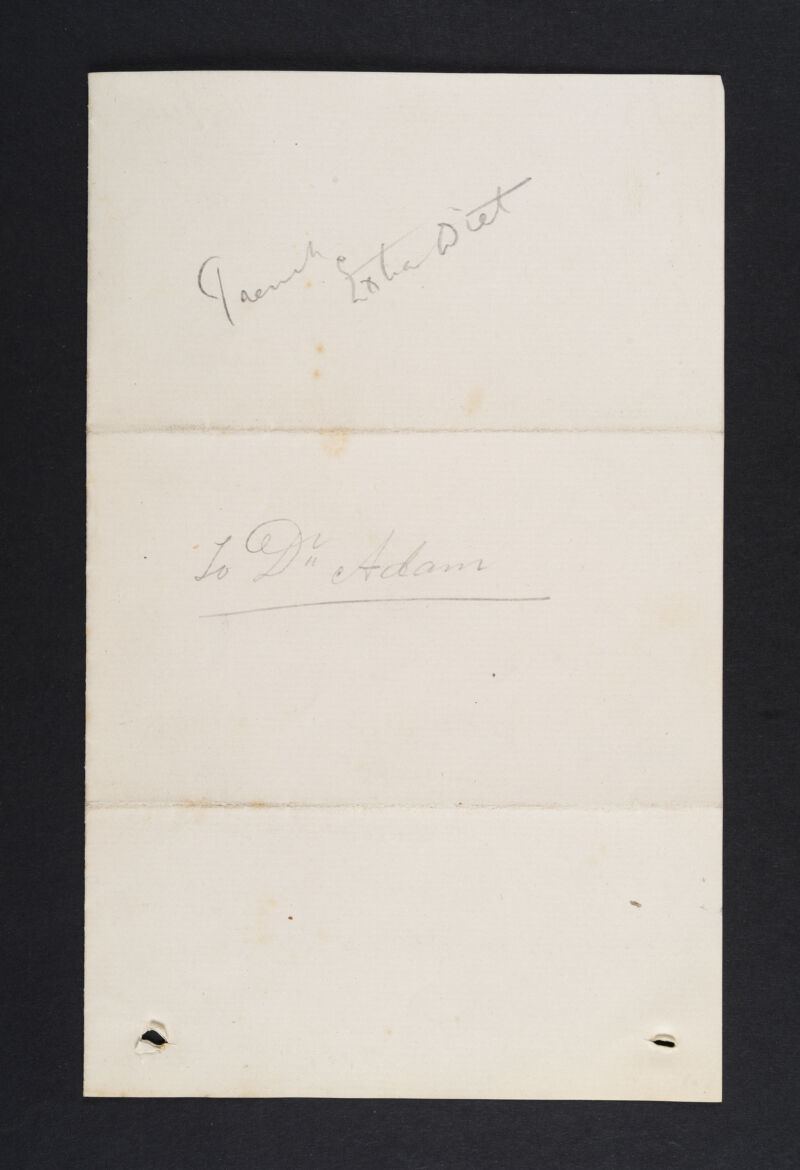 Extra Diet
To Dr Adam